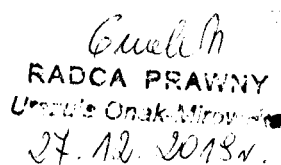 RADCA PRAWNY
Urszula Onak-Mirowska
27.12.2019r.